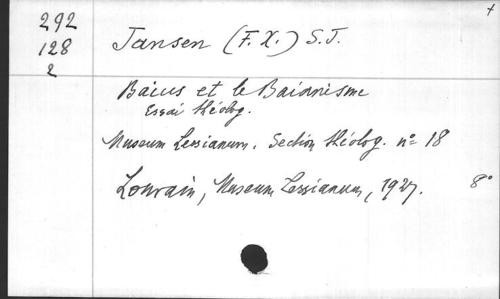 292
128
2
Jansen (F. X.) S.J.
Baius et le Baianisme
Essai théolog.
Museum Lessianum. Section théolog. nº 18
Louvain, Museum Lessianum, 1927. 8°